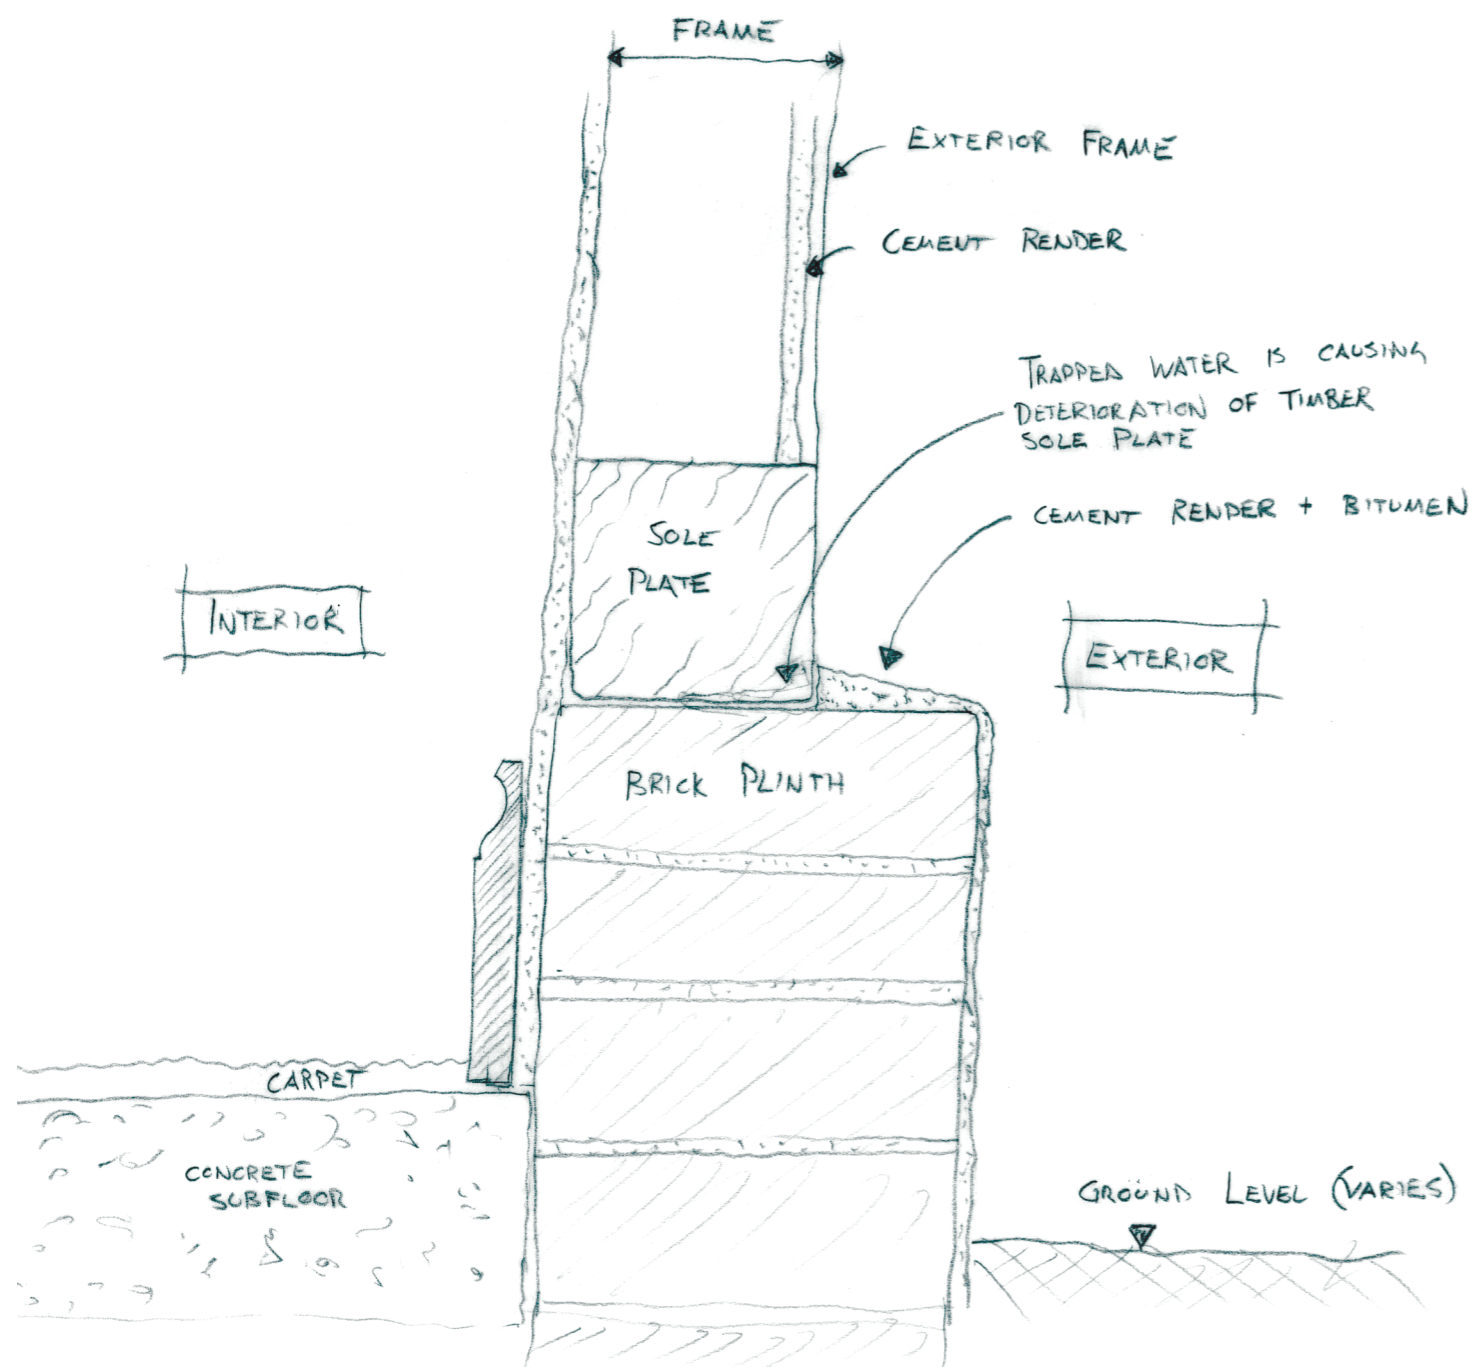 FRAME
EXTERIOR FRAME
CEMENT RENDER
TRAPPED WATER IS CAUSING
DETERIORATION OF TIMBER
SOLE PLATE
CEMENT RENDER + BITUMEN
SOLE
PLATE
INTERIOR
EXTERIOR
BRICK PLINTH
CARPET
CONCRETE
SUBFLOOR
GROUND LEVEL (VARIES)